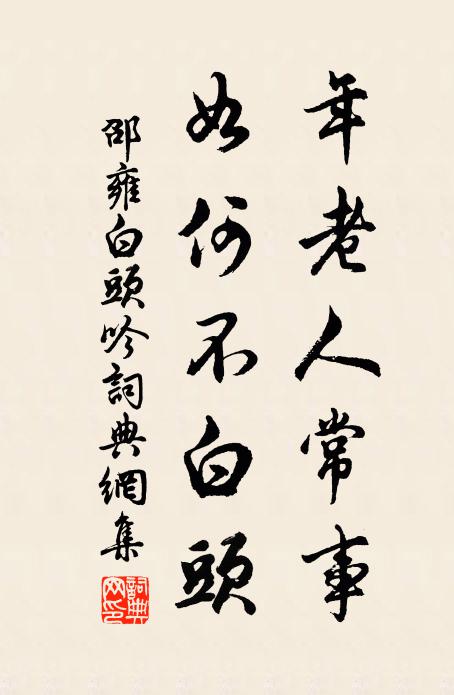 年老人常事
如何不白頭
邵雍白頭吟詞典網集
詞典网印